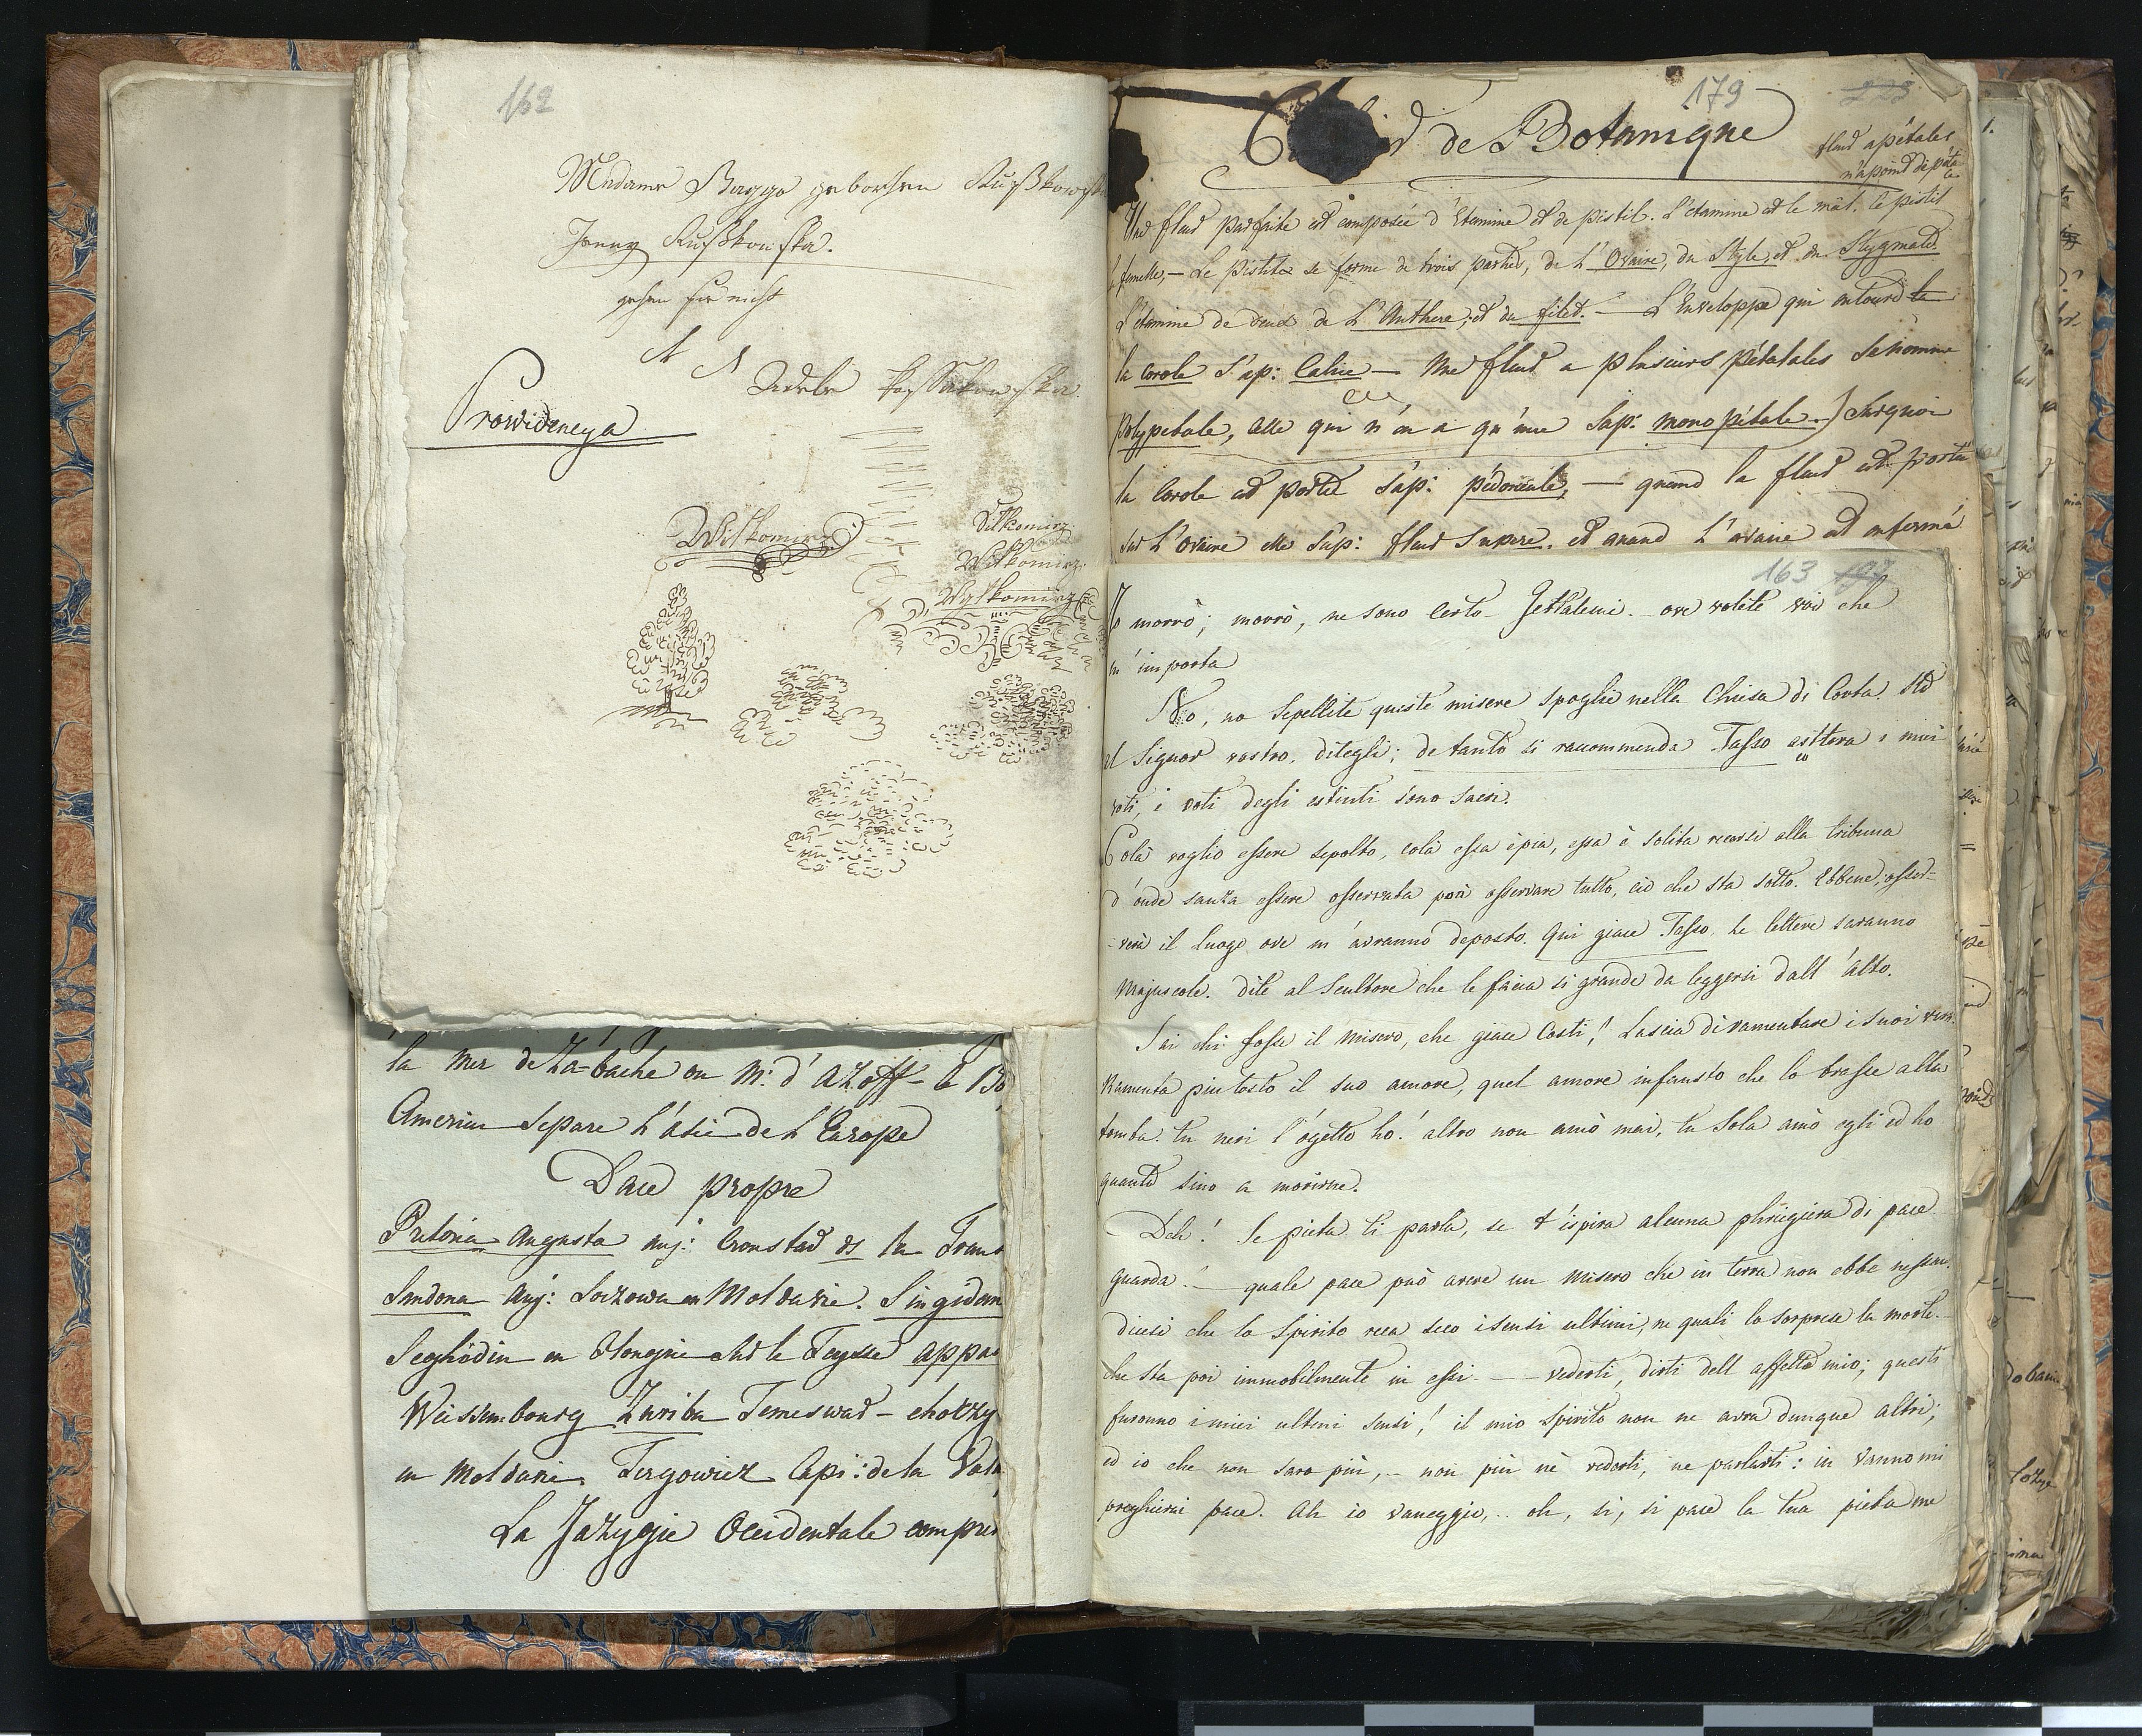 162
Madame Bagge geborhen
Jenny Rußkowska.
gehen sie nicht
A N
Adele Kossakowska
Prowidencya
Wilkomirz
Vilkomirz
Wilkomirz
Wylkomirz
la Mer de Zabache ou M. d'Azoff - le Bo
Cimerien separe l'Asie de l'Europe
Dace propre
Pretoria Augusta auj: Cronstad ds la Trans
Sandona auj: Soczowa en Moldavie. Singidun
Seghédin en Hongrie sur le Teysse appar
Weissembourg Zuriba Temeswar - chotzy
en Moldavie Tergowicz Capi: de la Vala
La Jazygie Occidentale compre
179
de Botanique
fleur apétales
n'a point de péta
le
Une fleur parfaite est composée d'Etamine et de pistil. L'étamine est le mâl. Le pistil
femelle, - Le pistile se forme de trois parties, de l'Ovaire, du Style, et du Stygmate.
L'étamine de deux de l'Anthere, et du filet. - L'Enveloppe qui entoure la
la Corole s'ap: Calice - Une fleur a plusieurs pétatales se nomme
Polypetale, celle qui n'en a qu'une s'ap: monopétale.) Surquoi
la Corole est portée s'ap: pédoncule, - quand la fleur est portée
sur l'ovaire elle s'ap: fleur supere. et quand l'ovaire est enfermé
163
Io morrò; morrò, ne sono certo - Gettatemi. - ove volete voi che
m'importa
No, no sepellite queste misere spoglie nella Chiesa di Corte.
al Signor vostro. ditegli; de tanto si raccommenda Tasso i miei
voti, i voti degli estinti sono sacri.
Colà voglio essere sepolto, colà essa è pia, essa è solita recarsi alla tribuna
d'onde sanza essere osservata può osservare tutto, ciò che sta sotto. Ebbene, osser=
=verà il luogo ove m'avranno deposto. Qui giace Tasso. Le lettere saranno
Majuscole. Dite al scultore che le facia si grande da leggersi dall'alto.
Sai chi fosse il misero, che giace Costi! Lascia di ramentare i suoi
Ramenta piu tosto il suo amore, quel amore infausto che lo trasse alla
tomba. tu neri l'ogetto ho! altro non amò mai, tu sola amò egli ed ho
quanto sino a morirne.
Deh! Se pieta ti parla, se t'ispira alcuna di pace
guarda! - quale pace può avere un misero che in terra non ebbe nessun.
dicesi che lo Spirito reca seco i sensi ultimi, ne quali lo sorprese la morte. -
che sta poi immobilmente in essi. - - vederti, dirti dell affetto mio; questi
furonno i miei ultimi sensi! il mio spirito non ne avra dunque altri;
ed io che non saro più, - non più nè vederti, ne parlarti: in vanno mi
preghierai pace. Ah io vaneggio,.. oh, si, si pace la tua pieta me